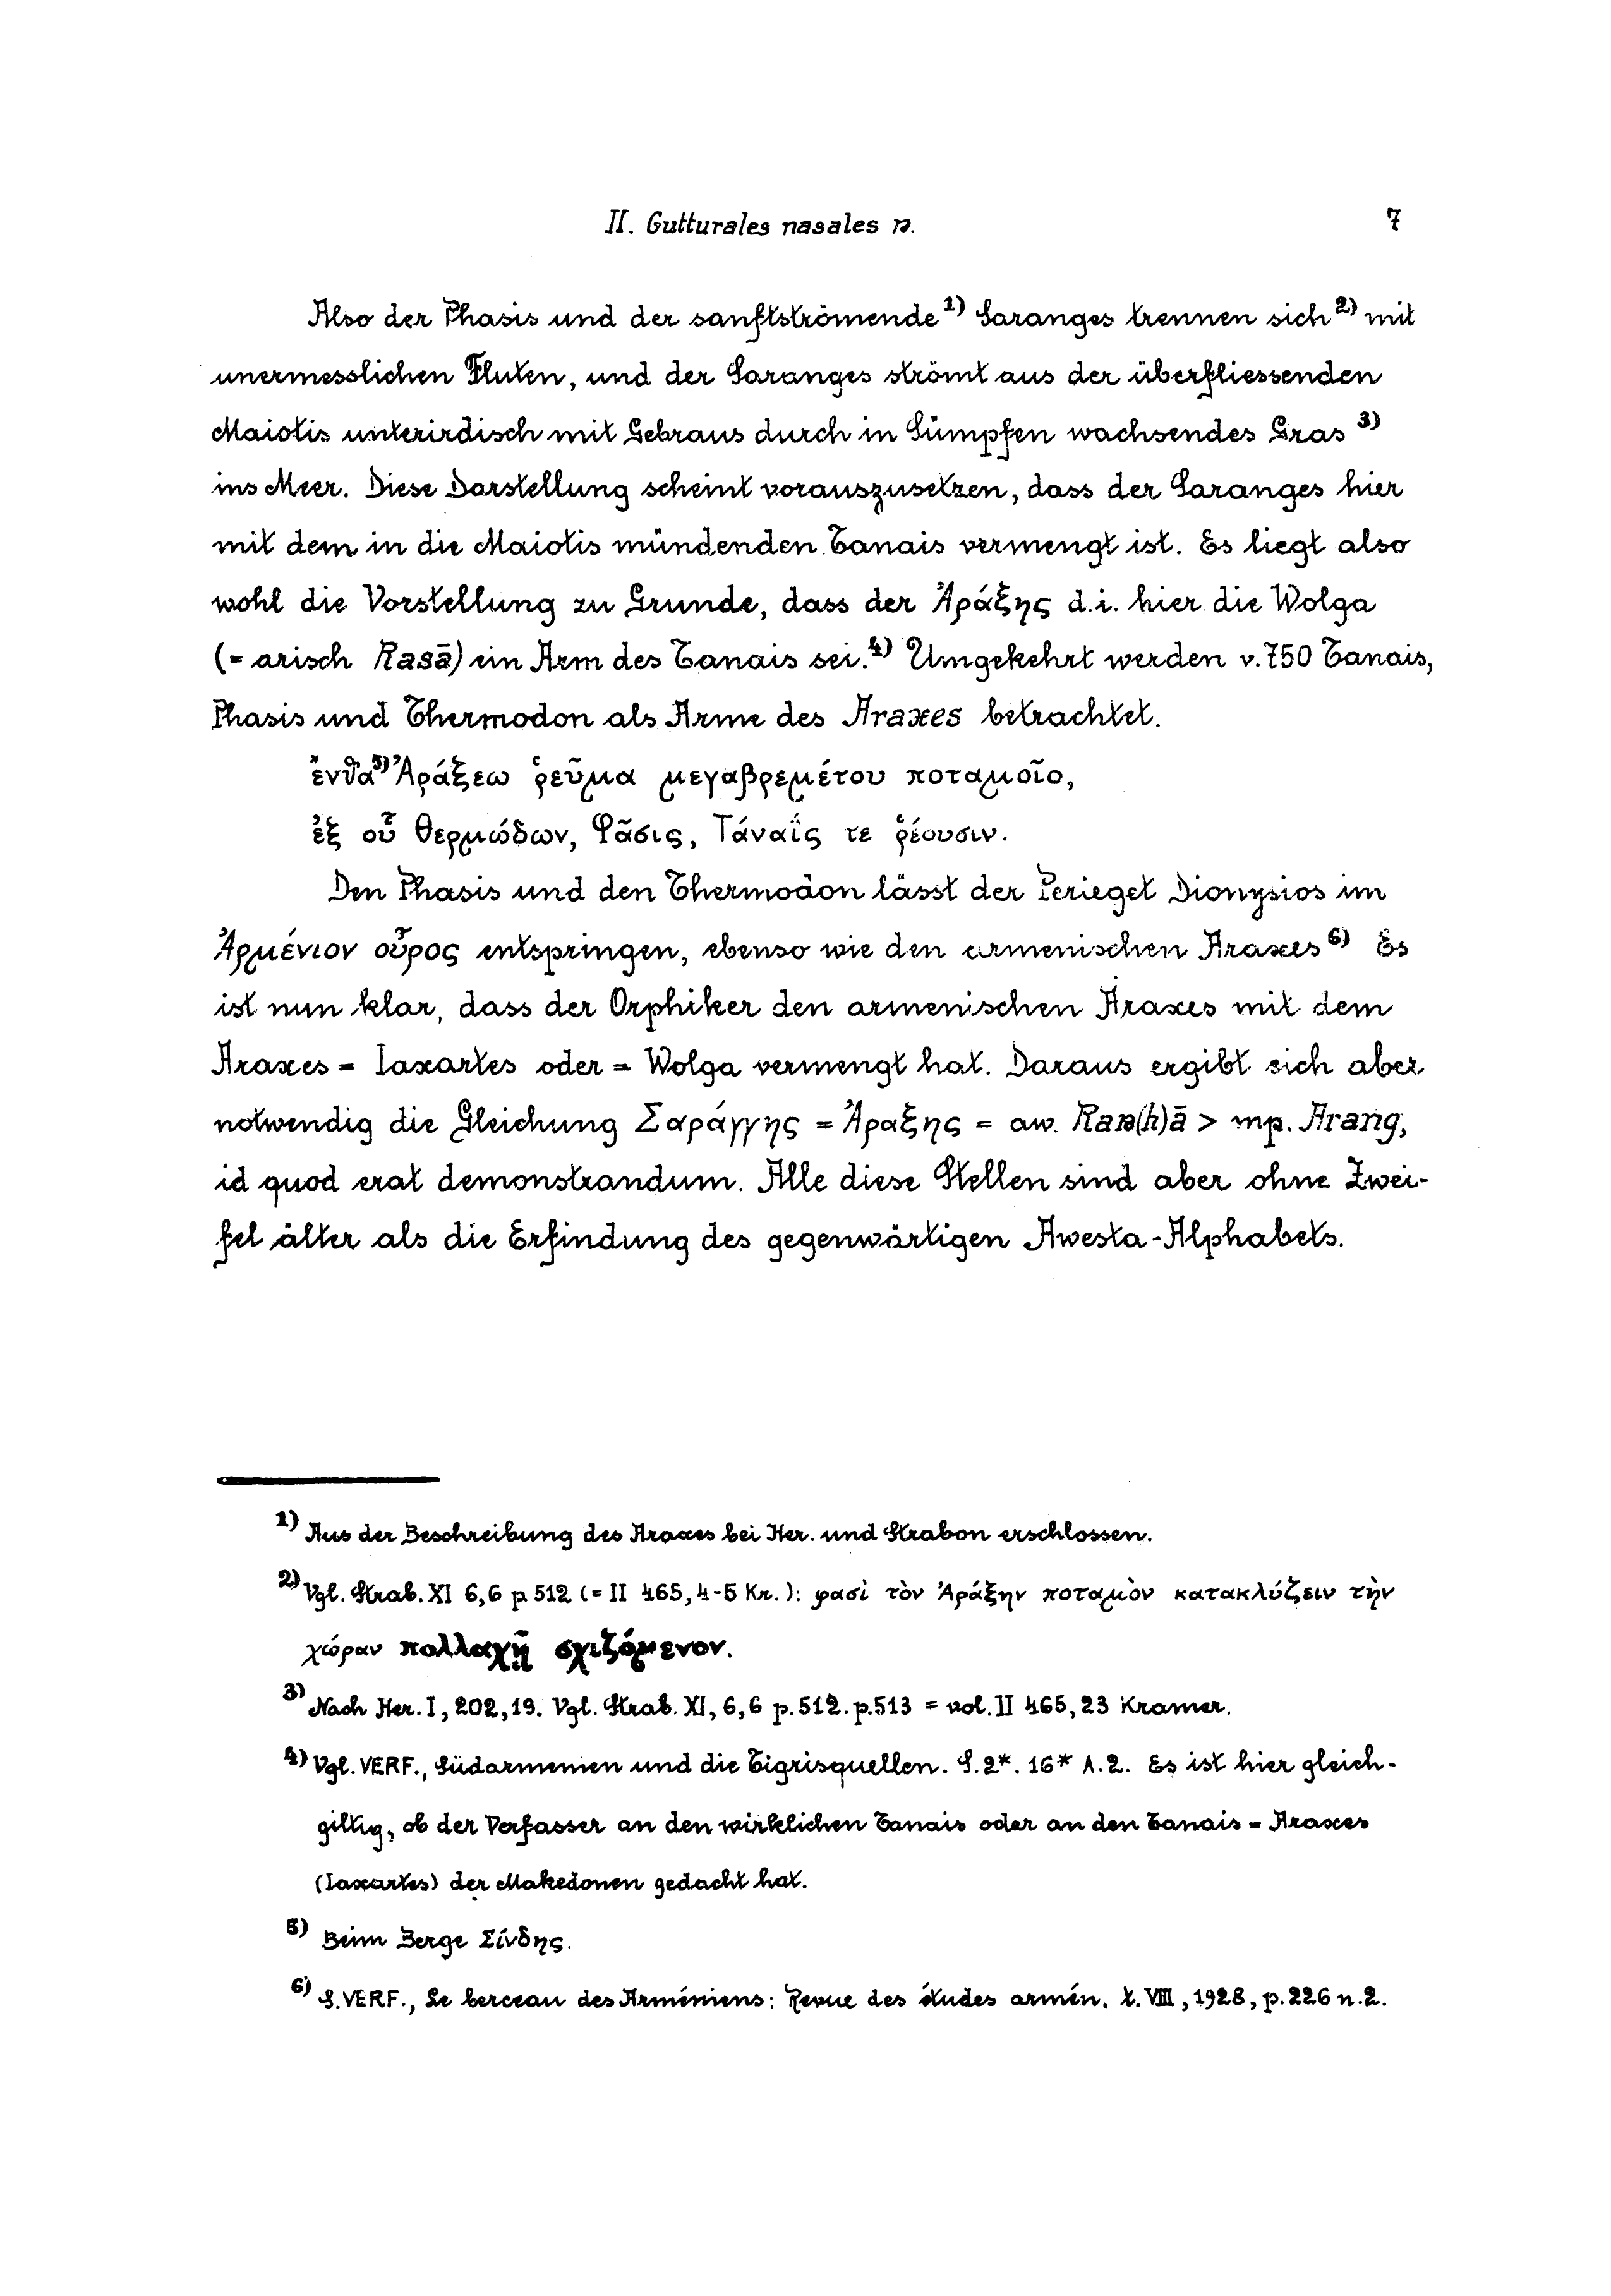 II. Gutturales nasales ŋ. 7
Also der Phasis und der sanftströmende 1) Saranges trennen sich 2) mit
unermesslichen Fluten, und der Saranges strömt aus der überfliessenden
Maiotis unterirdisch mit Gebraus durch in Sümpfen wachsendes Gras 3)
ins Meer. Diese Darstellung scheint vorauszusetzen, dass der Saranges hier
mit dem in die Maiotis mündenden Tanais vermengt ist. Es liegt also
wohl die Vorstellung zu Grunde, dass der Ἀράξης d.i. hier die Wolga
(= arisch Rasā) ein Arm des Tanais sei. 4) Umgekehrt werden v. 750 Tanais,
Phasis und Thermodon als Arme des Araxes betrachtet.
ἔνθα 5) Ἀράξεω ῥεῦμα μεγαβρεμέτου ποταμοῖο,
ἐξ οὗ Θερμώδων, Φᾶσις, Τάναΐς τε ῥέουσιν.
Den Phasis und den Thermodon lässt der Perieget Dionysios im
Ἀρμένιον οὖρος entspringen, ebenso wie den armenischen Araxes 6) Es
ist nun klar, dass der Orphiker den armenischen Araxes mit dem
Araxes = Iaxartes oder = Wolga vermengt hat. Daraus ergibt sich aber
notwendig die Gleichung Σαράγγης = Ἀραξης = aw. Raŋ(h)ā > mp. Arang,
id quod erat demonstrandum. Alle diese Stellen sind aber ohne Zwei-
fel älter als die Erfindung des gegenwärtigen Awesta-Alphabets.
1) Aus der Beschreibung des Araxes bei Her. und Strabon erschlossen.
2) Vgl. Strab. XI 6,6 p 512 (= II 465, 4-5 Kr.): φασὶ τὸν Ἀράξην ποταμὸν κατακλύζειν τὴν
χώραν πολλαχῆ σχιζόμενον.
3) Nach Her. I, 202, 19. Vgl. Strab. XI, 6,6 p. 512. p. 513 = vol. II 465, 23 Kramer.
4) Vgl. VERF., Südarmenien und die Tigrisquellen. S. 2*. 16* A. 2. Es ist hier gleich-
giltig, ob der Verfasser an den wirklichen Tanais oder an den Tanais = Araxes
(Iaxartes) der Makedonen gedacht hat.
5) Beim Berge Σίνδης.
6) S. VERF., Le berceau des Arméniens: Revue des études armén. t. VIII, 1928, p. 226 n. 2.